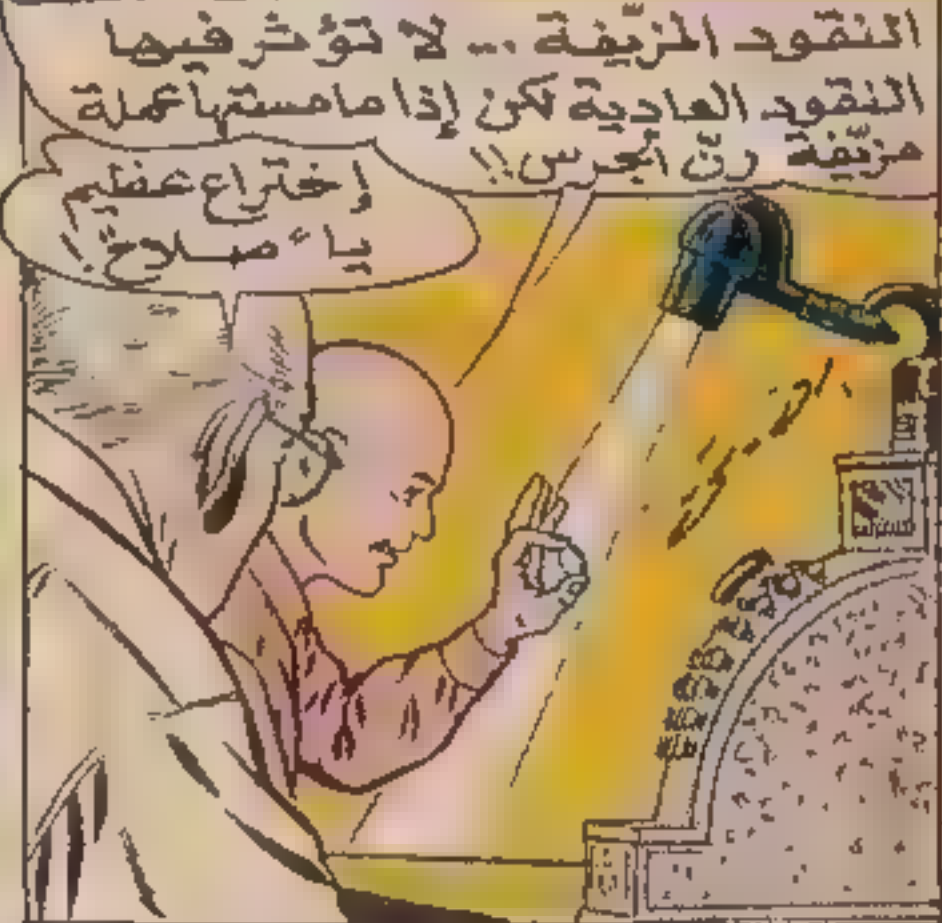 النقود المزيّفة ... لا تؤثر فيها
النقود العادية لكن إذا ما مستها عملة
مزيّفة رنّ الجرس!!
إختراع عظيم
يا صلاح!